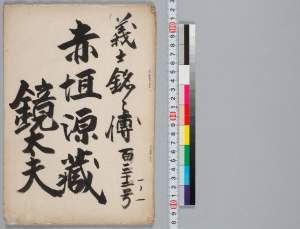 義士銘々傳 百三十五号
一ノ一
赤垣源藏
鏡太夫